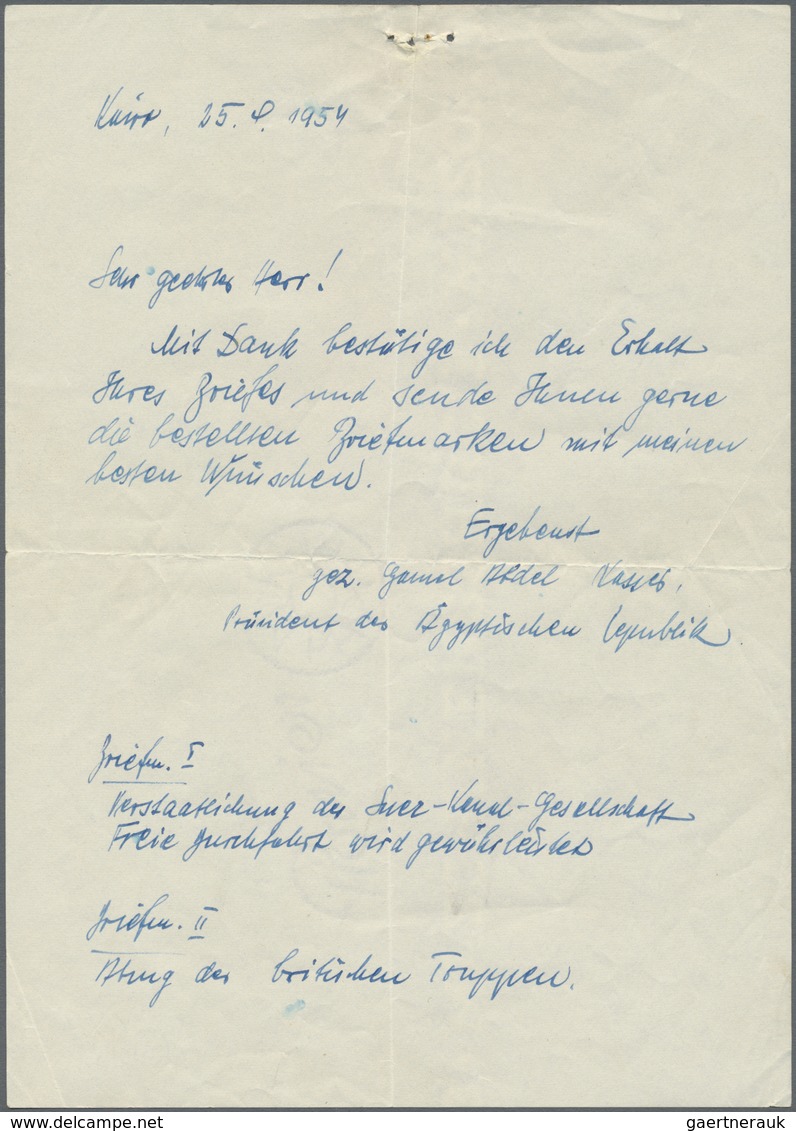 Kairo, 25. 8. 1954
Sehr geehrter Herr!
Mit Dank bestätige ich den Erhalt
Ihres Briefes und sende Ihnen gerne
die bestellten Briefmarken mit meinen
besten Wünschen.
Ergebenst
gez. Gamal Abdel Nasser,
Präsident der Ägyptischen Republik
Briefm. I
Verstaatlichung der Suez-Kanal-Gesellschaft
Freie Durchfahrt wird gewährleistet
Briefm. II
Abzug der britischen Truppen.
gaertnerauk